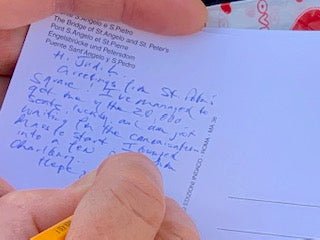 Ponte S.Angelo e S.Pietro
The Bridge of St.Angelo and St. Peter's
Pont S.Angelo et St.Pierre
Engelsbrücke und Petersdom
Puente Sant'Angelo y S.Pedro
Hi Judith,
Greetings from St. Peter's
Square! I've managed to
get one of the 20,000
seats, luckily, and am just
waiting for the canonization
Mass to start. I bumped
into a few
Charlbury
Hope
EDIZIONI
ROMA